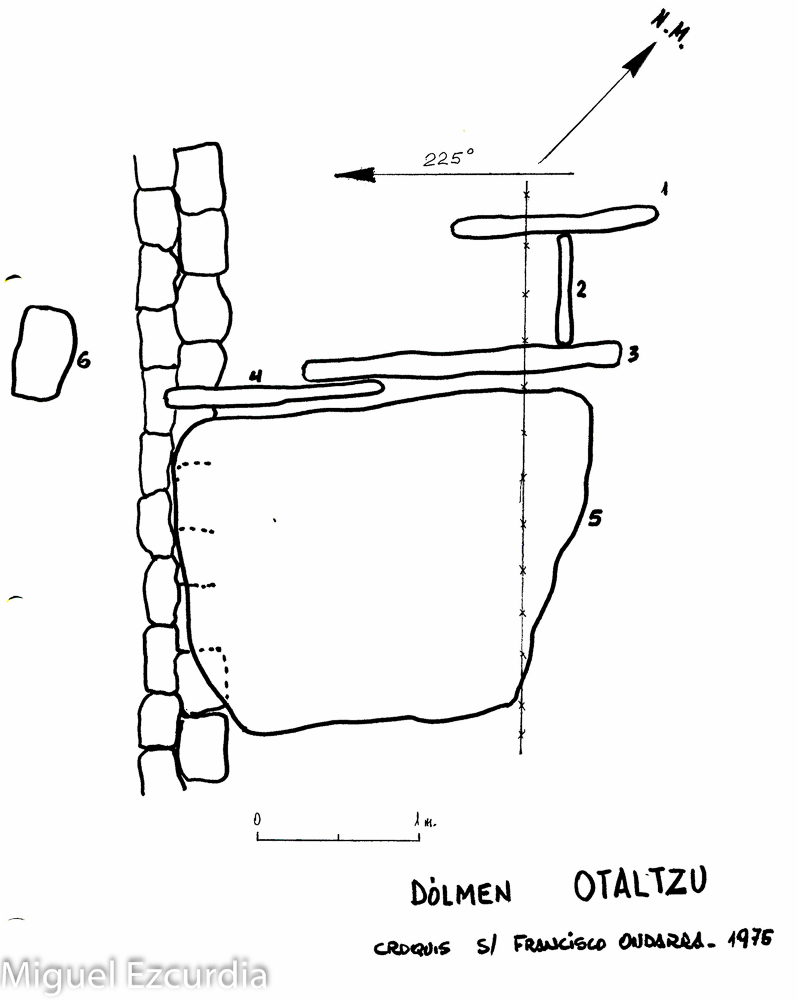 N.M.
225°
1
2
3
4
5
6
0 1 m.
DÓLMEN OTALTZU
CROQUIS S/ FRANCISCO ONDARRA - 1975
Miguel Ezcurdia